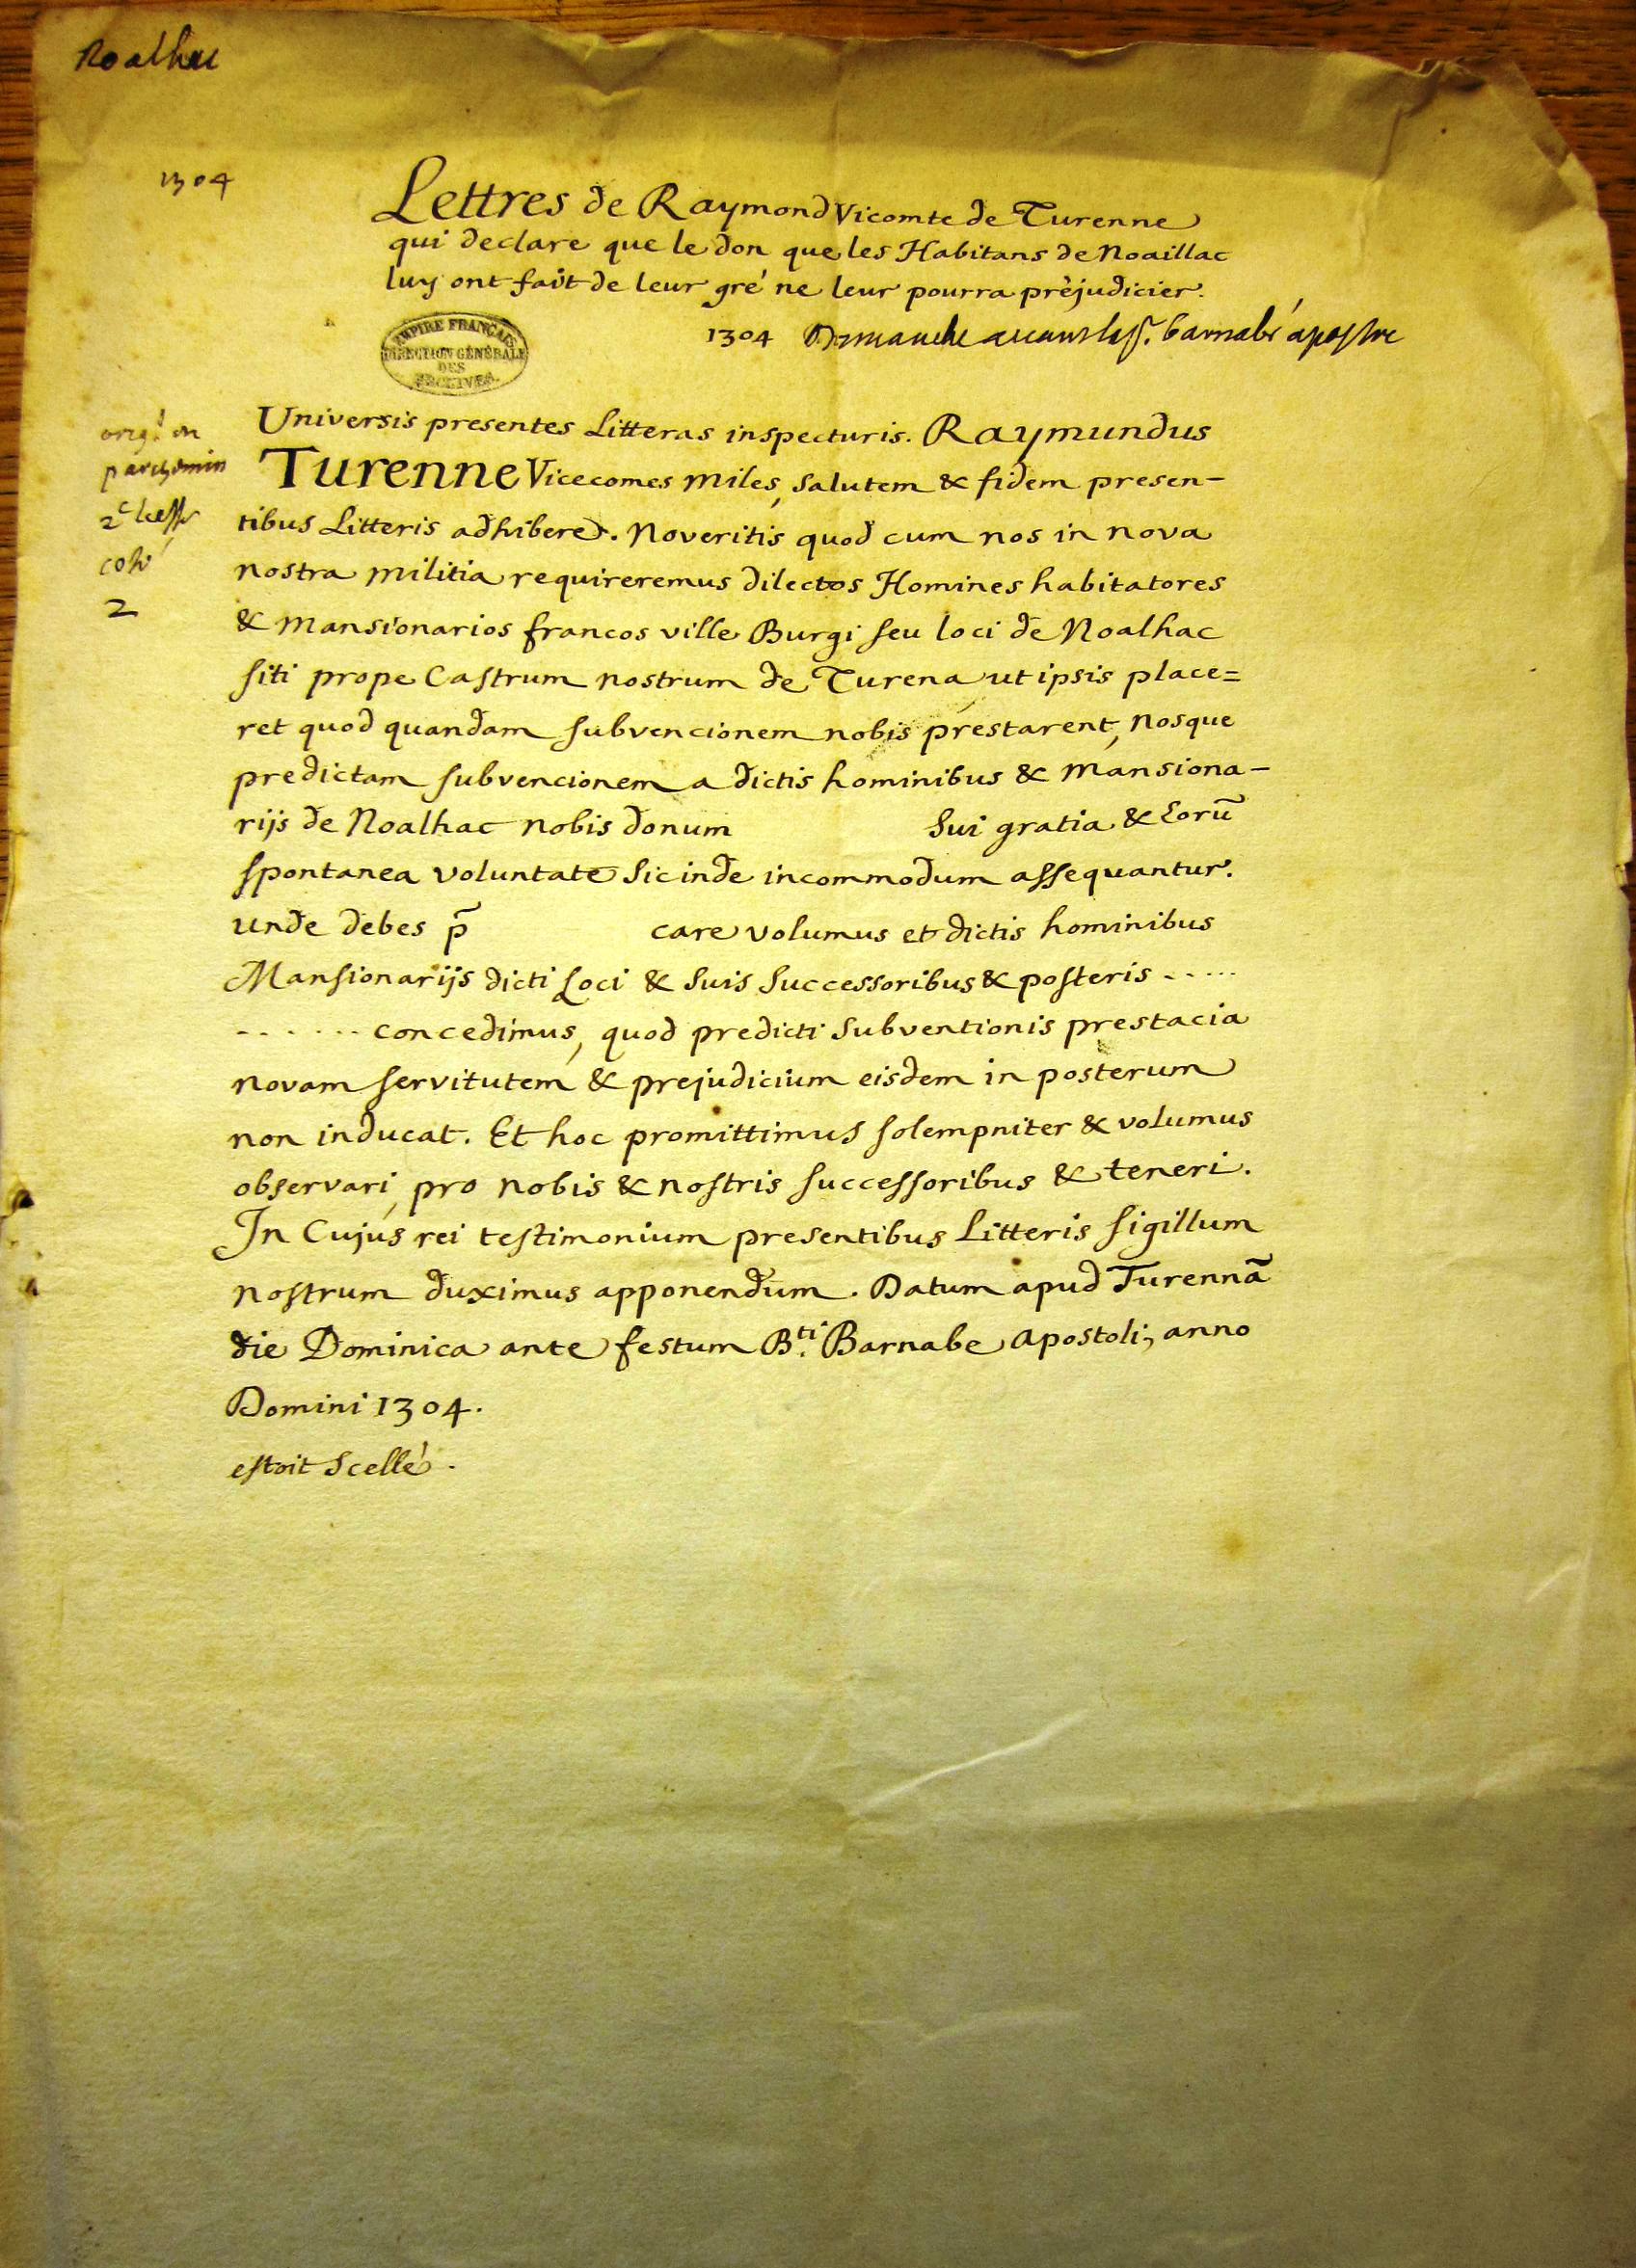 Noalhac
1304
Lettres de Raymond Vicomte de Turenne
qui declare que le don que les Habitans de Noaillac
luy ont fait de leur gré ne leur pourra prèjudicier.
1304 Dimanche avant la st. barnabé apostre
EMPIRE FRANÇAIS
DIRECTION GÉNÉRALE
DES
ARCHIVES
orig.l en
parchemin
2e
2
Universis presentes Litteras inspecturis. Raymundus
Turenne Vicecomes miles, salutem & fidem presen-
tibus Litteris adhibere. Noveritis quod cum nos in nova
nostra militia requireremus dilectos Homines habitatores
& mansionarios francos ville Burgi seu loci de Noalhac
siti prope Castrum nostrum de Turena, ut ipsis place=
ret quod quandam subvencionem nobis prestarent, Nosque
predictam subvencionem a dictis hominibus & mansiona-
rijs de Noalhac nobis donum sui gratia & Eorū
spontanea voluntate sic inde incommodum assequantur.
unde debes p̄ care volumus et dictis hominibus
Mansionarijs dicti Loci & suis successoribus & posteris - . . . .
- . . . . . concedimus, quod predicti subventionis prestacia
novam servitutem & prejudicium eisdem in posterum
non inducat. Et hoc promittimus solempniter & volumus
observari, pro nobis & nostris successoribus & teneri.
In Cujus rei testimonium presentibus Litteris sigillum
nostrum duximus apponendum. Datum apud Turennā
die Dominica ante festum B.ti Barnabe Apostoli, anno
Domini 1304.
estoit scellé.